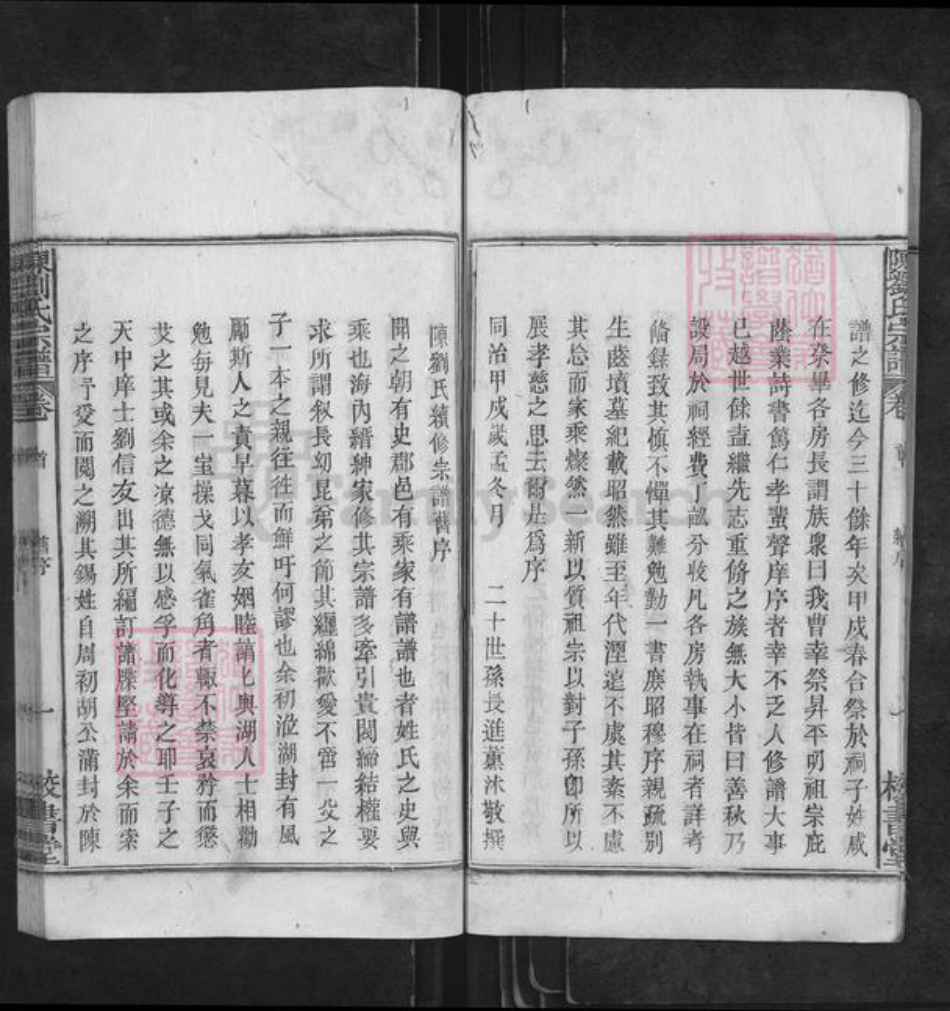 陳劉氏宗譜
卷
首
續序
一
校書堂
譜之修迄今三十餘年矣甲戌春合祭於祠子姓咸
在祭畢各房長謂族衆曰我曹幸際昇平明祖崇庇
蔭業詩書篤仁孝蜚聲庠序者幸不乏人修譜大事
已越世餘盍繼先志重脩之族無大小皆曰善秋乃
設局於祠經費丁畝分收凡各房執事在祠者詳考
備錄致其慎不憚其難勉勤一書庶昭穆序親疏別
生齒墳墓紀載昭然雖至年代湮遠不虞其紊不慮
其忘而家乘燦然一新以質祖宗以對子孫卽所以
展孝慈之思云爾是爲序
同治甲戌歲孟冬月 二十世孫長進薰沐敬撰
陳劉氏續修宗譜舊序
聞之朝有史郡邑有乘家有譜譜也者姓氏之史與
乘也海內縉紳家修其宗譜多牽引貴閥締結權要
求所謂叙長幼昆弟之節其纏綿歡愛不啻一父之
子一本之親往往而鮮吁何謬也余初涖湖封有風
勵斯人之責早暮以孝友姻睦諸士與湖人士相勸
勉每見夫一室操戈同氣雀角者輒不禁哀矜而懲
艾之其或余之凉德無以感孚而化導之耶壬子之
天中庠士劉信友出其所編訂譜牒堅請於余而索
之序予爰而閱之溯其錫姓自周初胡公滿封於陳
陳劉氏宗譜
卷
首
舊序
一
校書堂
FamilySearch